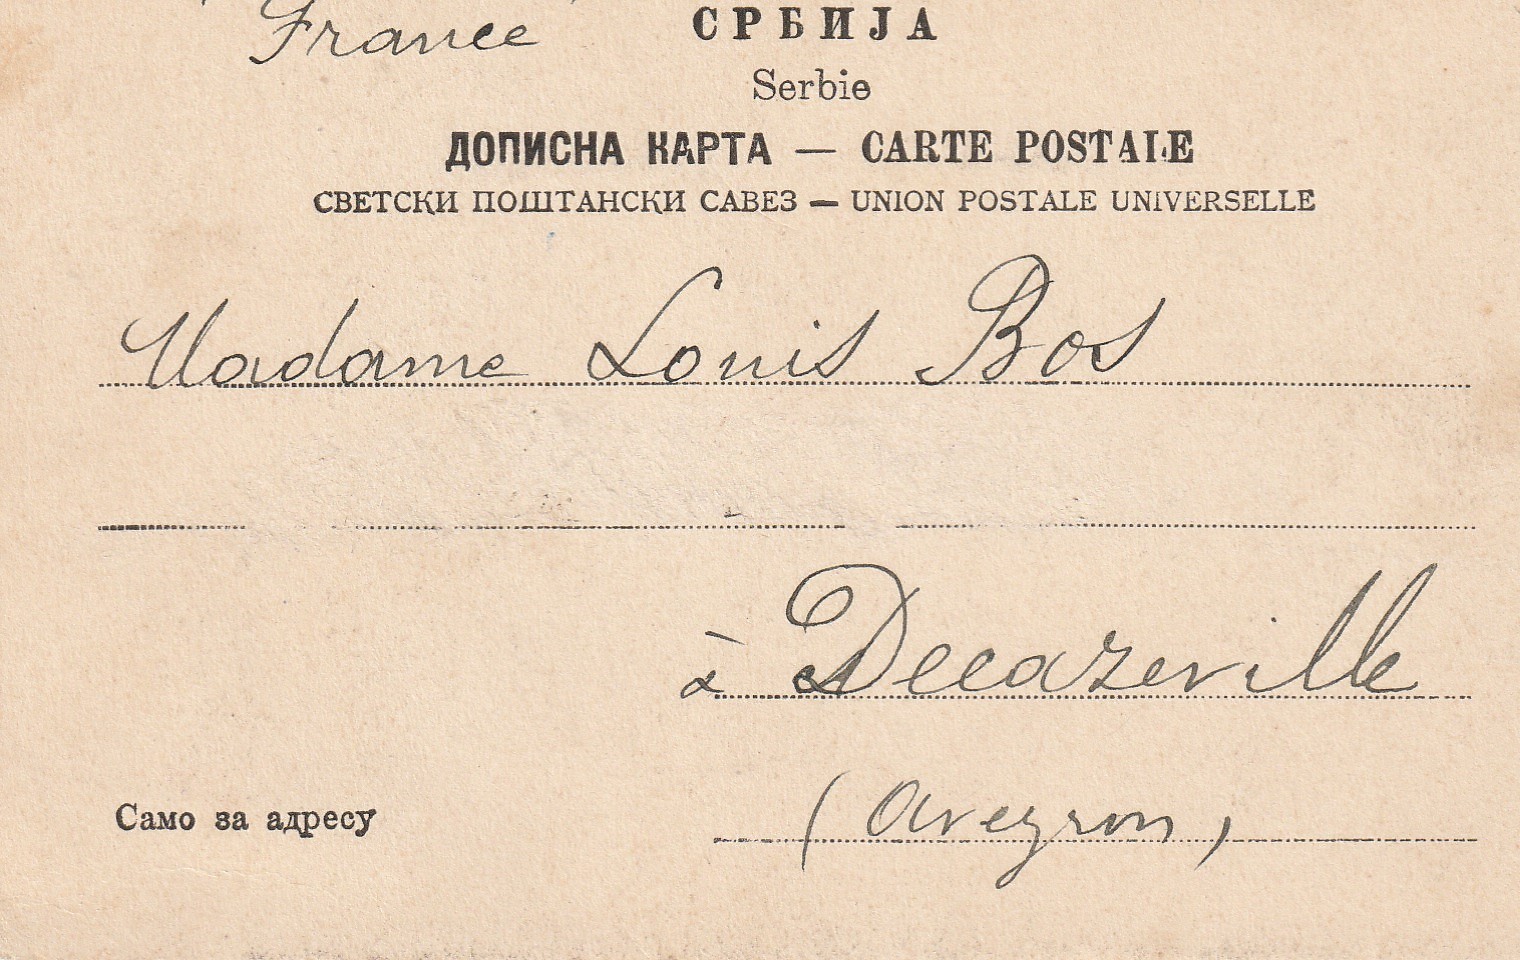 France
СРБИЈА
Serbie
ДОПИСНА КАРТА — CARTE POSTALE
СВЕТСКИ ПОШТАНСКИ САВЕЗ — UNION POSTALE UNIVERSELLE
Madame Louis Bos
à Decazeville
Само за адресу
(Aveyron)